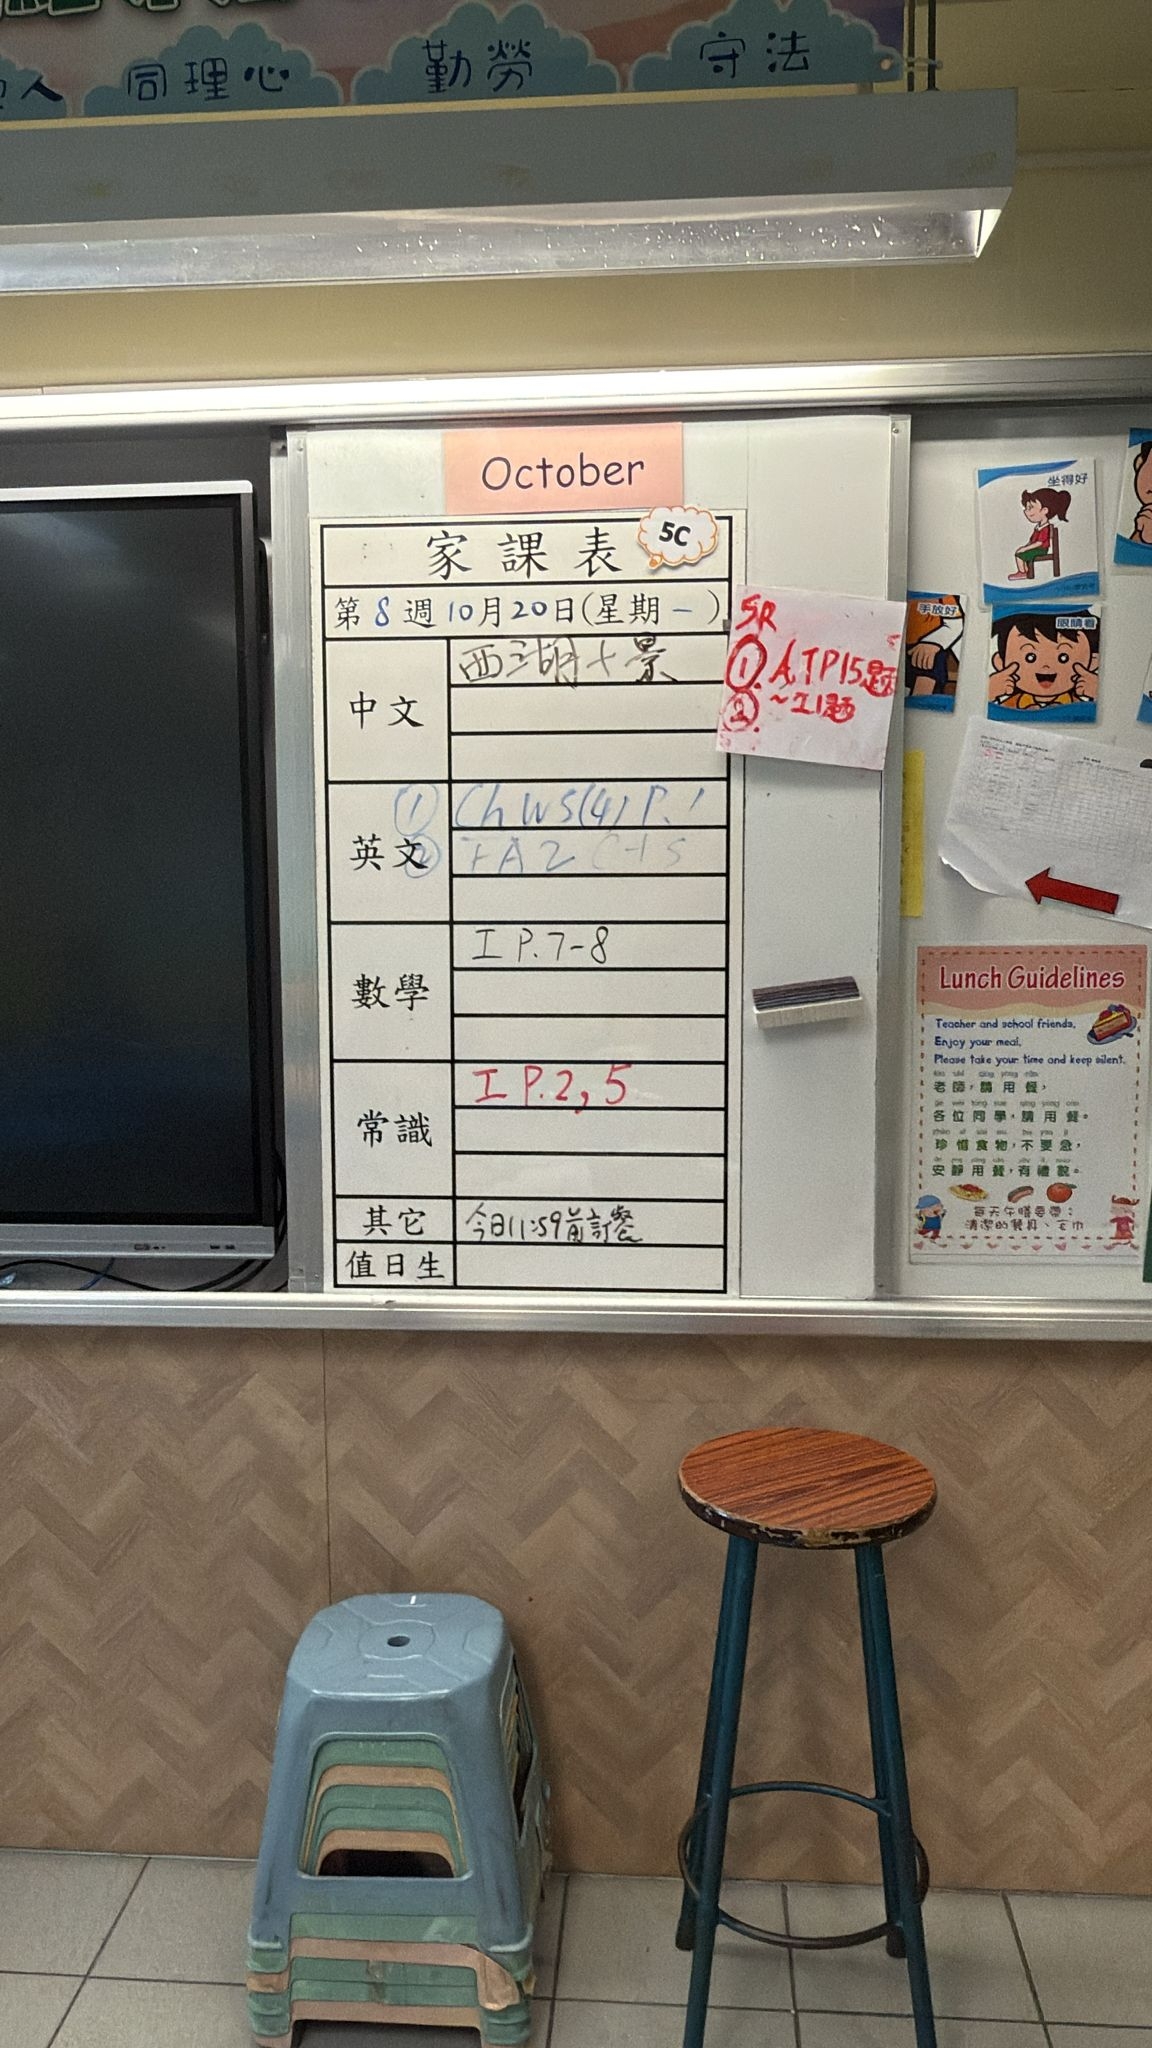 同理心
勤勞
守法
October
家課表
5C
第8週10月20日(星期一)
中文
西湖十景
英文
① Ch WS(4) P.1
②
數學
I P.7-8
常識
I P.2,5
其它
今日11:59前訂餐
值日生
5R
① ATP15題
②
坐得好
手放好
眼睛看
Lunch Guidelines
Teacher and school friends,
Enjoy your meal,
Please take your time and keep silent.
老師,請用餐,
各位同學,請用餐。
珍惜食物,不要急,
安靜用餐,有禮貌。
每天午膳要帶:
清潔的餐具、毛巾